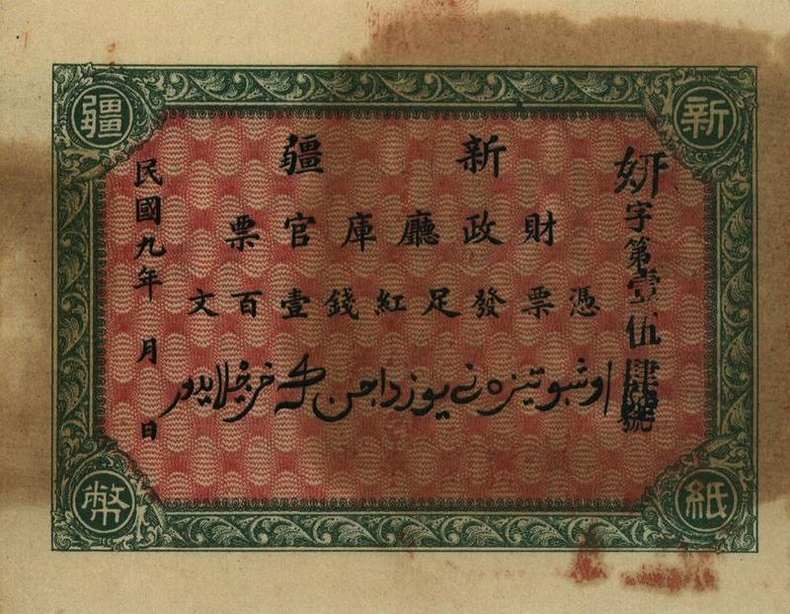 新疆
紙幣
字第壹伍肆號
新疆
財政廳庫官票
憑票發足紅錢壹百文
اوشبو تیزه نی یوز داچن
民國九年 月 日